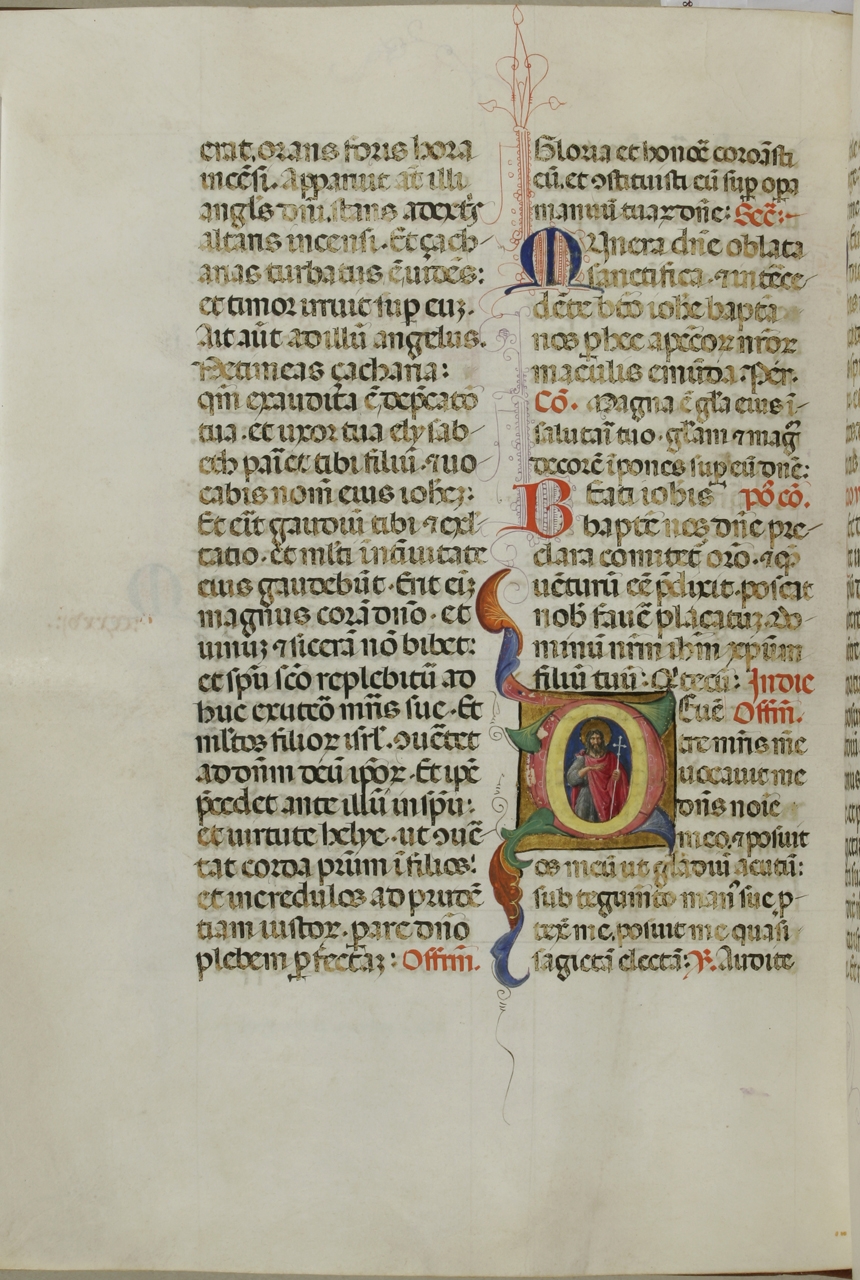 erat. orans foris hora
incẽsi. Apparuit aũt illi
angl's dñi. stans a dextris
altaris incensi. Et çach-
arias turbatus ẽ uidẽs:
et timor irruit sup eus.
Ait aũt ad illũ angelus.
Ne timeas çacharia:
qm̃ exaudita ẽ depcatio
tua. et uxor tua elysab-
eth pariet tibi filiũ. ⁊ uo-
cabis nom̃ eius iohes:
Et erit gaudiũ tibi ⁊ exl-
tatio. et mlti ĩ natiuitate
eius gaudebũt. Erit eĩ
magnus corã dño. et
uinũ ⁊ sicerã nõ bibet:
et spũ sc̃o replebitũ ad
huc ex utero mr̃is sue. Et
mltos filioꝝ isrl. ꝯuertet
ad dñm deũ ipoꝝ. Et ip̃e
p̃cedet ante illũ in spũ:
et uirtute helye. ut ꝯuer-
tat corda prũm ĩ filios:
et incredulos ad prudẽ-
tiam iustoꝝ. parare dño
plebem ꝑfectaz: Offm̃.
Gloria et honoꝛe coroãsti
eũ. et ꝯstituisti eũ sup opa
manuũ tuaꝝ dñe: Sec̃:
Munera dñe oblata
sanctifica. ⁊ intẽce-
dẽte bt̃o iohe bapta
nos ꝑ hec a pec̃coꝝ nr̃oꝝ
maculis emũda. Per.
Cõ. Magna ẽ gl'a eius ĩ
salutari tuo. gl'am ⁊ mag̃
decorẽ ĩpones sup eũ dñe:
Beati iohis põ cõ.
bapte nos dñe pre-
clara comitet̃ orõ. ⁊ q̃
uẽturũ eẽ p̃dixit. poscat
nob̃ fauẽ placatuz. do-
minũ nr̃m ihm̃ xpũm
filiũ tuũ: Qui tecũ: In die
De uẽ Offm̃.
tre mr̃is me
uocauit me
dñs noĩe
meo. ⁊ posuit
os meũ ut gladiũ acutũ:
sub tegumẽto man' sue p-
texit me, posuit me quasi
sagictã electã: R. Audite